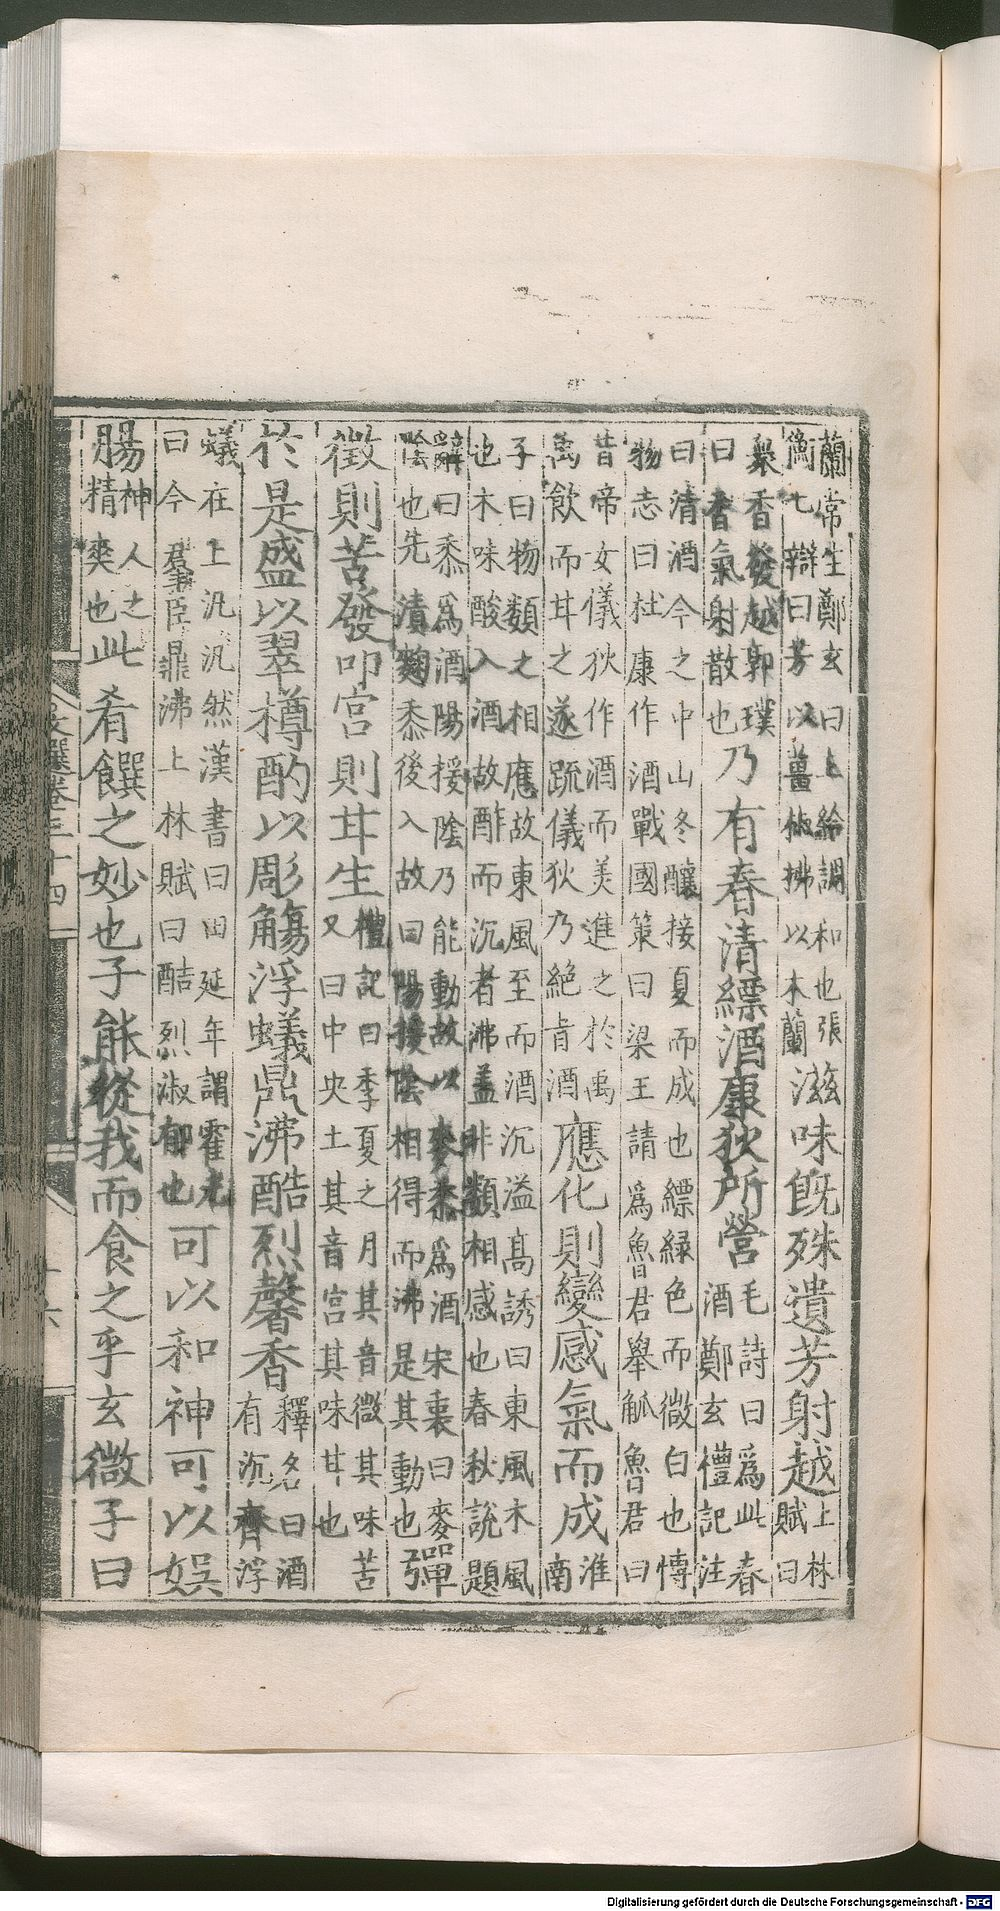 蘭常生鄭玄曰上給調和也張
衡七辯曰芳以薑椒拂以木蘭
滋味旣殊遺芳射越
上林
賦曰
衆香發越郭璞
曰香氣射散也
乃有春清縹酒康狄所營
毛詩曰爲此春
酒鄭玄禮記注
曰清酒今之中山冬釀接夏而成也縹緑色而微白也博
物志曰杜康作酒戰國策曰梁王請爲魯君舉觚魯君曰
昔帝女儀狄作酒而美進之於禹
禹飲而甘之遂疏儀狄乃絶旨酒
應化則變感氣而成
淮
南
子曰物類之相應故東風至而酒沉溢髙誘曰東風木風
也木味酸入酒故酢而沉者沸蓋非類相感也春秋説題
辭曰黍爲酒陽援陰乃能動故以麥黍爲酒宋衷曰麥
陰也先漬麴黍後入故曰陽援陰相得而沸是其動也
彈
徵則苦發叩宫則甘生
禮記曰季夏之月其音徵其味苦
又曰中央土其音宫其味甘也
於是盛以翠樽酌以彫觴浮蟻鼎沸酷烈馨香
釋名曰酒
有沉齊浮
蟻在上汎汎然漢書曰田延年謂霍光
曰今羣臣鼎沸上林賦曰酷烈淑郁也
可以和神可以娱
腸
神人之
精爽也
此肴饌之妙也子能從我而食之乎玄微子曰
文選卷三十四
十六
Digitalisierung gefördert durch die Deutsche Forschungsgemeinschaft - DFG